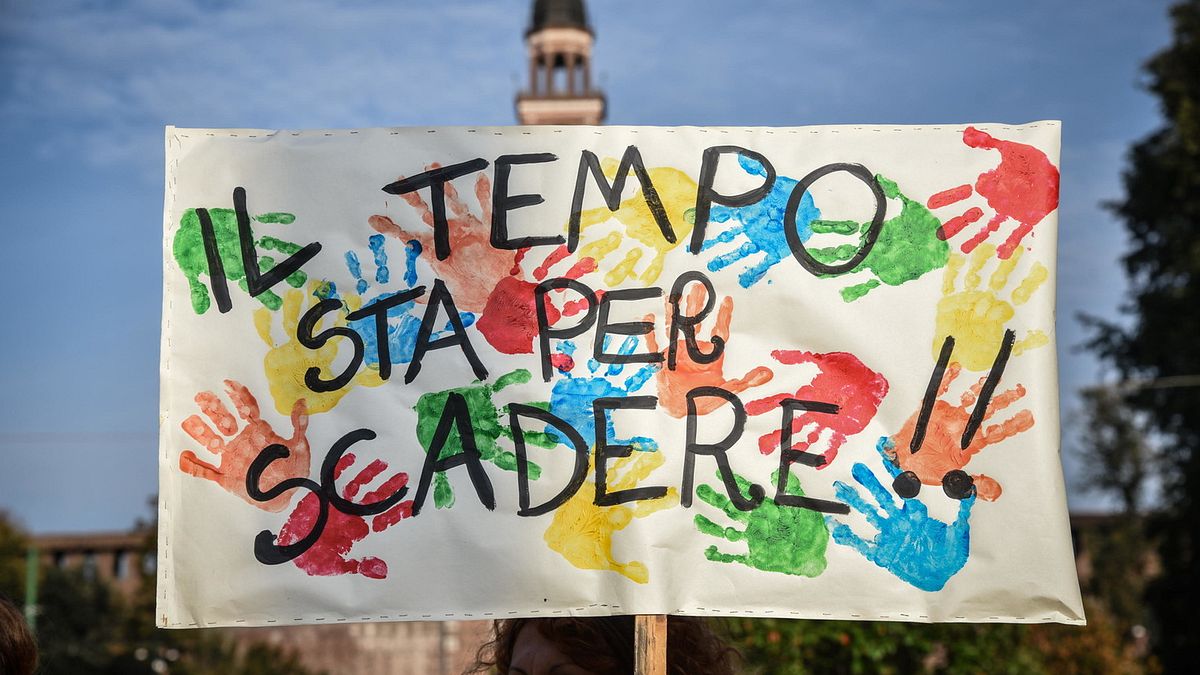 IL TEMPO
STA PER
SCADERE!!